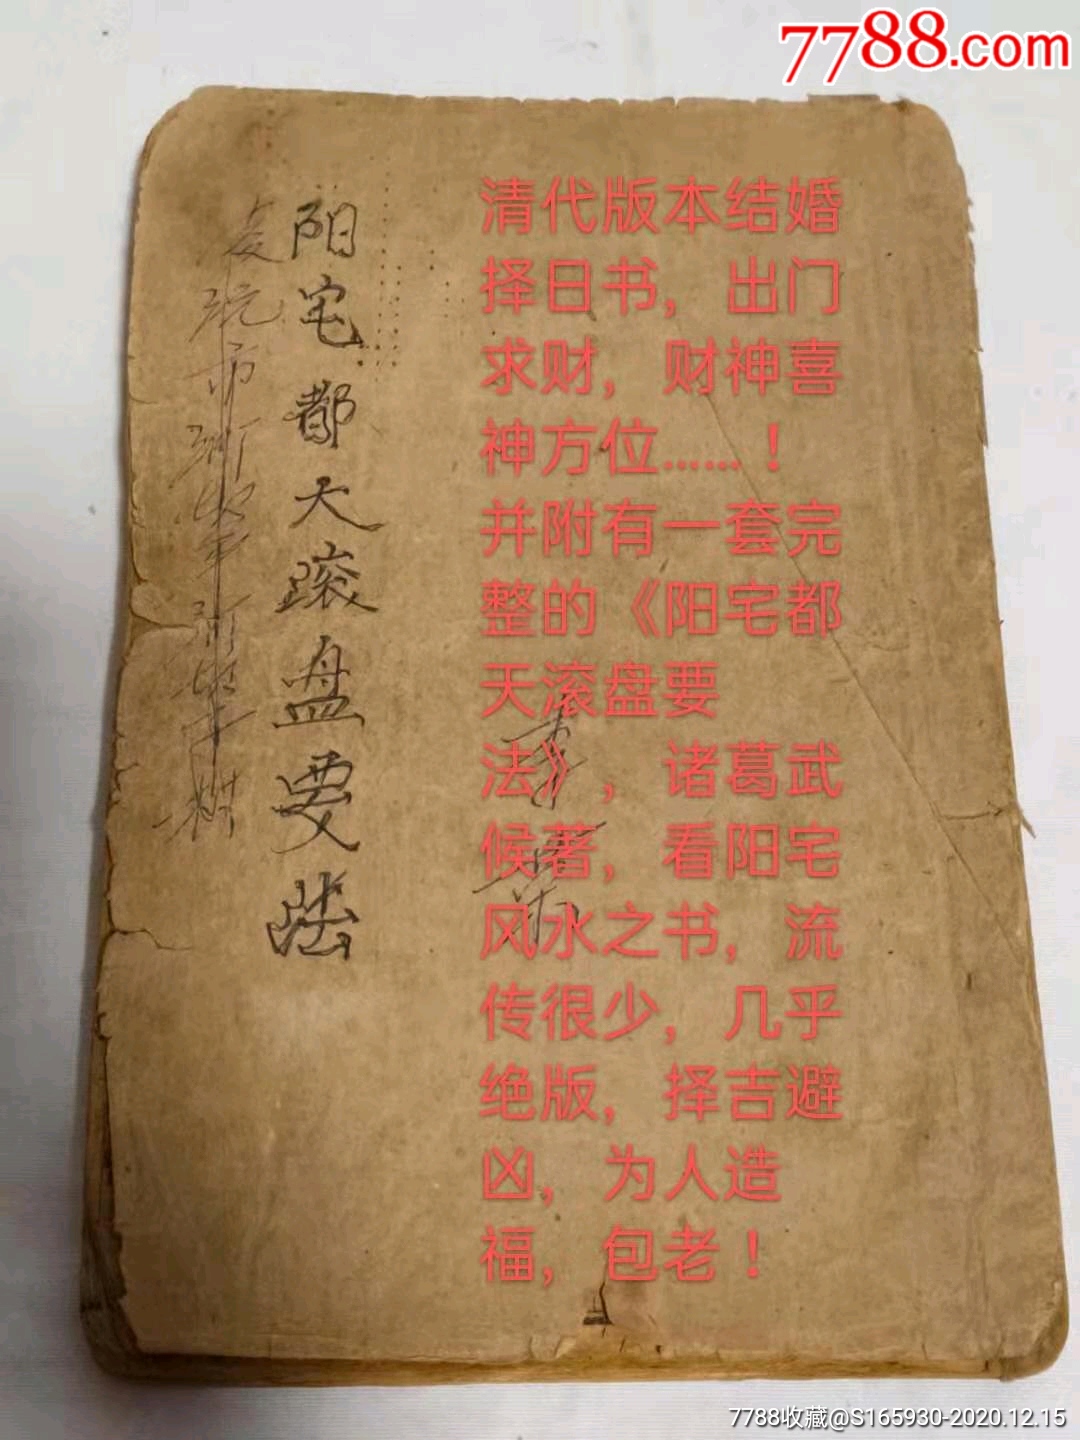 7788.com
清代版本结婚
择日书，出门
求财，财神喜
神方位……！
并附有一套完
整的《阳宅都
天滚盘要
法》，诸葛武
候著，看阳宅
风水之书，流
传很少，几乎
绝版，择吉避
凶，为人造
福，包老！
阳宅都天滚盘要法
7788收藏@S165930-2020.12.15